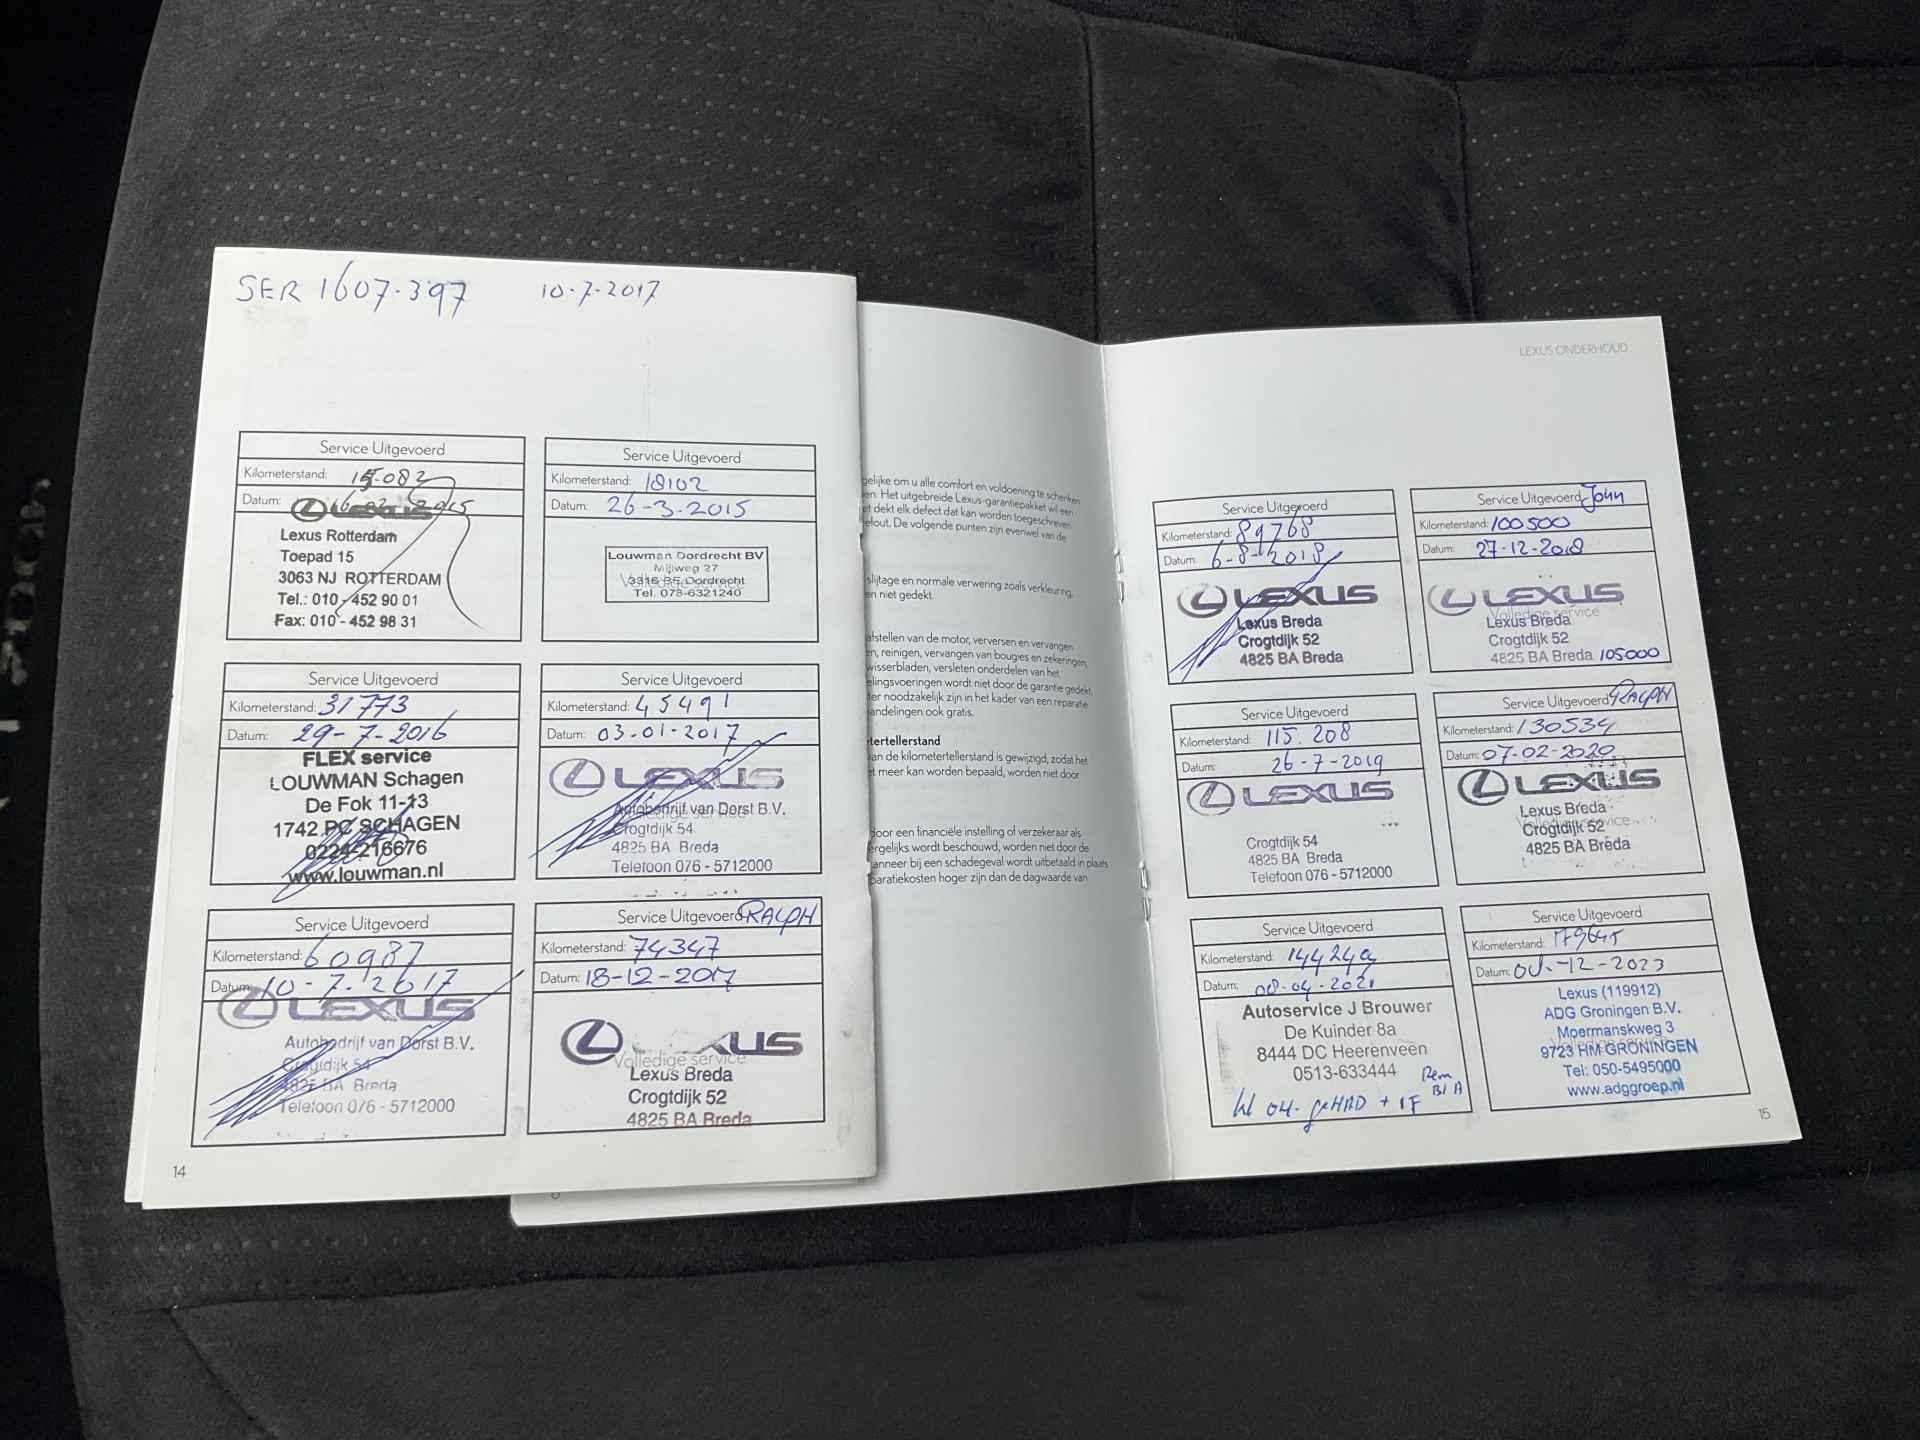 SER 1607-397 10-7-2017
Service Uitgevoerd
Kilometerstand: 15.082
Datum: 2015
LEXUS
Lexus Rotterdam
Toepad 15
3063 NJ ROTTERDAM
Tel.: 010 - 452 90 01
Fax: 010 - 452 98 31
Service Uitgevoerd
Kilometerstand: 18102
Datum: 26-3-2015
Louwman Dordrecht BV
Mijlweg 27
3316 BE Dordrecht
Volledige service
Tel. 078-6321240
Service Uitgevoerd
Kilometerstand: 31773
Datum: 29-7-2016
FLEX service
LOUWMAN Schagen
De Fok 11-13
1742 PC SCHAGEN
0224-216676
www.louwman.nl
Service Uitgevoerd
Kilometerstand: 45491
Datum: 03-01-2017
LEXUS
Autobedrijf van Dorst B.V.
Volledige service
Crogtdijk 54
4825 BA Breda
Telefoon 076 - 5712000
Service Uitgevoerd
Kilometerstand: 60987
Datum: 10-7-2017
LEXUS
Autobedrijf van Dorst B.V.
Crogtdijk 54
4825 BA Breda
Telefoon 076 - 5712000
Service Uitgevoerd RALPH
Kilometerstand: 74347
Datum: 18-12-2017
LEXUS
Volledige service
Lexus Breda
Crogtdijk 52
4825 BA Breda
14
gelijke om u alle comfort en voldoening te schenken
en. Het uitgebreide Lexus-garantiepakket wil een
et dekt elk defect dat kan worden toegeschreven
efout. De volgende punten zijn evenwel van de
slijtage en normale verwering zoals verkleuring,
en niet gedekt.
afstellen van de motor, verversen en vervangen
en, reinigen, vervangen van bougies en zekeringen,
wisserbladen, versleten onderdelen van het
elingsvoeringen wordt niet door de garantie gedekt.
ter noodzakelijk zijn in het kader van een reparatie
andelingen ook gratis.
etertellerstand
van de kilometertellerstand is gewijzigd, zodat het
et meer kan worden bepaald, worden niet door
door een financiële instelling of verzekeraar als
ergelijks wordt beschouwd, worden niet door de
wanneer bij een schadegeval wordt uitbetaald in plaats
paratiekosten hoger zijn dan de dagwaarde van
LEXUS ONDERHOUD
Service Uitgevoerd
Kilometerstand: 89768
Datum: 6-8-2018
LEXUS
Lexus Breda
Crogtdijk 52
4825 BA Breda
Service Uitgevoerd John
Kilometerstand: 100500
Datum: 27-12-2018
LEXUS
Volledige service
Lexus Breda
Crogtdijk 52
4825 BA Breda 105000
Service Uitgevoerd
Kilometerstand: 115.208
Datum: 26-7-2019
LEXUS
Crogtdijk 54
4825 BA Breda
Telefoon 076 - 5712000
Service Uitgevoerd RALPH
Kilometerstand: 130534
Datum: 07-02-2020
LEXUS
Lexus Breda
Volledige service
Crogtdijk 52
4825 BA Breda
Service Uitgevoerd
Kilometerstand: 144249
Datum: 08-04-2021
Autoservice J Brouwer
De Kuinder 8a
8444 DC Heerenveen
0513-633444
Rem
Bl A
04- + IF
Service Uitgevoerd
Kilometerstand: 179645
Datum: -12-2023
Lexus (119912)
ADG Groningen B.V.
Moermanskweg 3
Volledige service
9723 HM GRONINGEN
Tel: 050-5495000
www.adggroep.nl
15